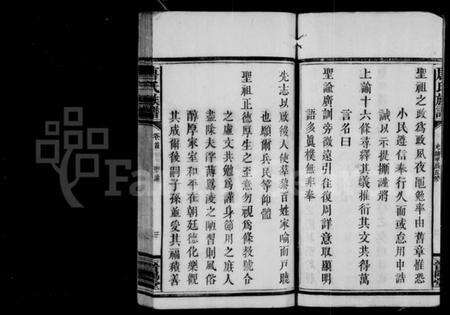 聖祖之政為政夙夜罷勉率由舊章惟恐
小民遵信奉行久而或怠用申誥
誡以示提撕謹將
上諭十六條尋繹其義推衍其文共得萬
言名曰
聖諭廣訓旁徵遠引往復周詳意取顯明
語多質樸無非奉
先志以啟後人使羣黎百姓家喻而戶曉
也願爾兵民等仰體
聖祖正德厚生之至意勿視為條教號令
之虛文共勉為謹身節用之庶人
盡除夫浮薄囂凌之陋習則風俗
醇厚家室和平在朝廷德化樂觀
其成爾後嗣子孫並受其福積善
族譜
氏族譜
卷首